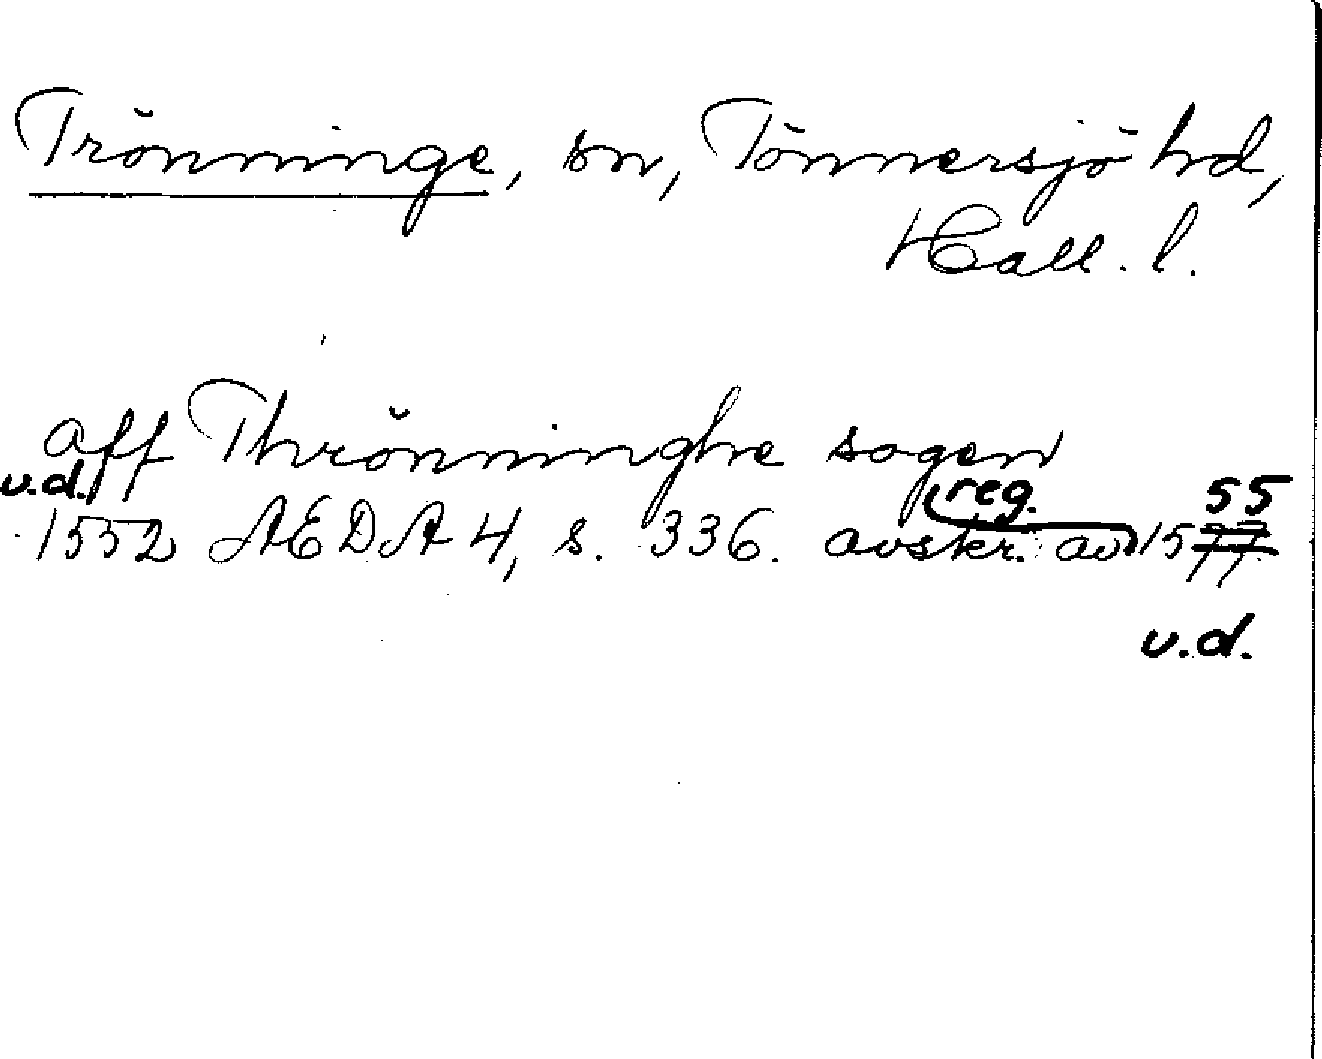 Trönninge, sn, Tönnersjö hd,
Hall. l.
aff Thrönninghe sogen
u.d. reg. 55
1552 AEDA 4, s. 336. avskr. av 1577
u.d.